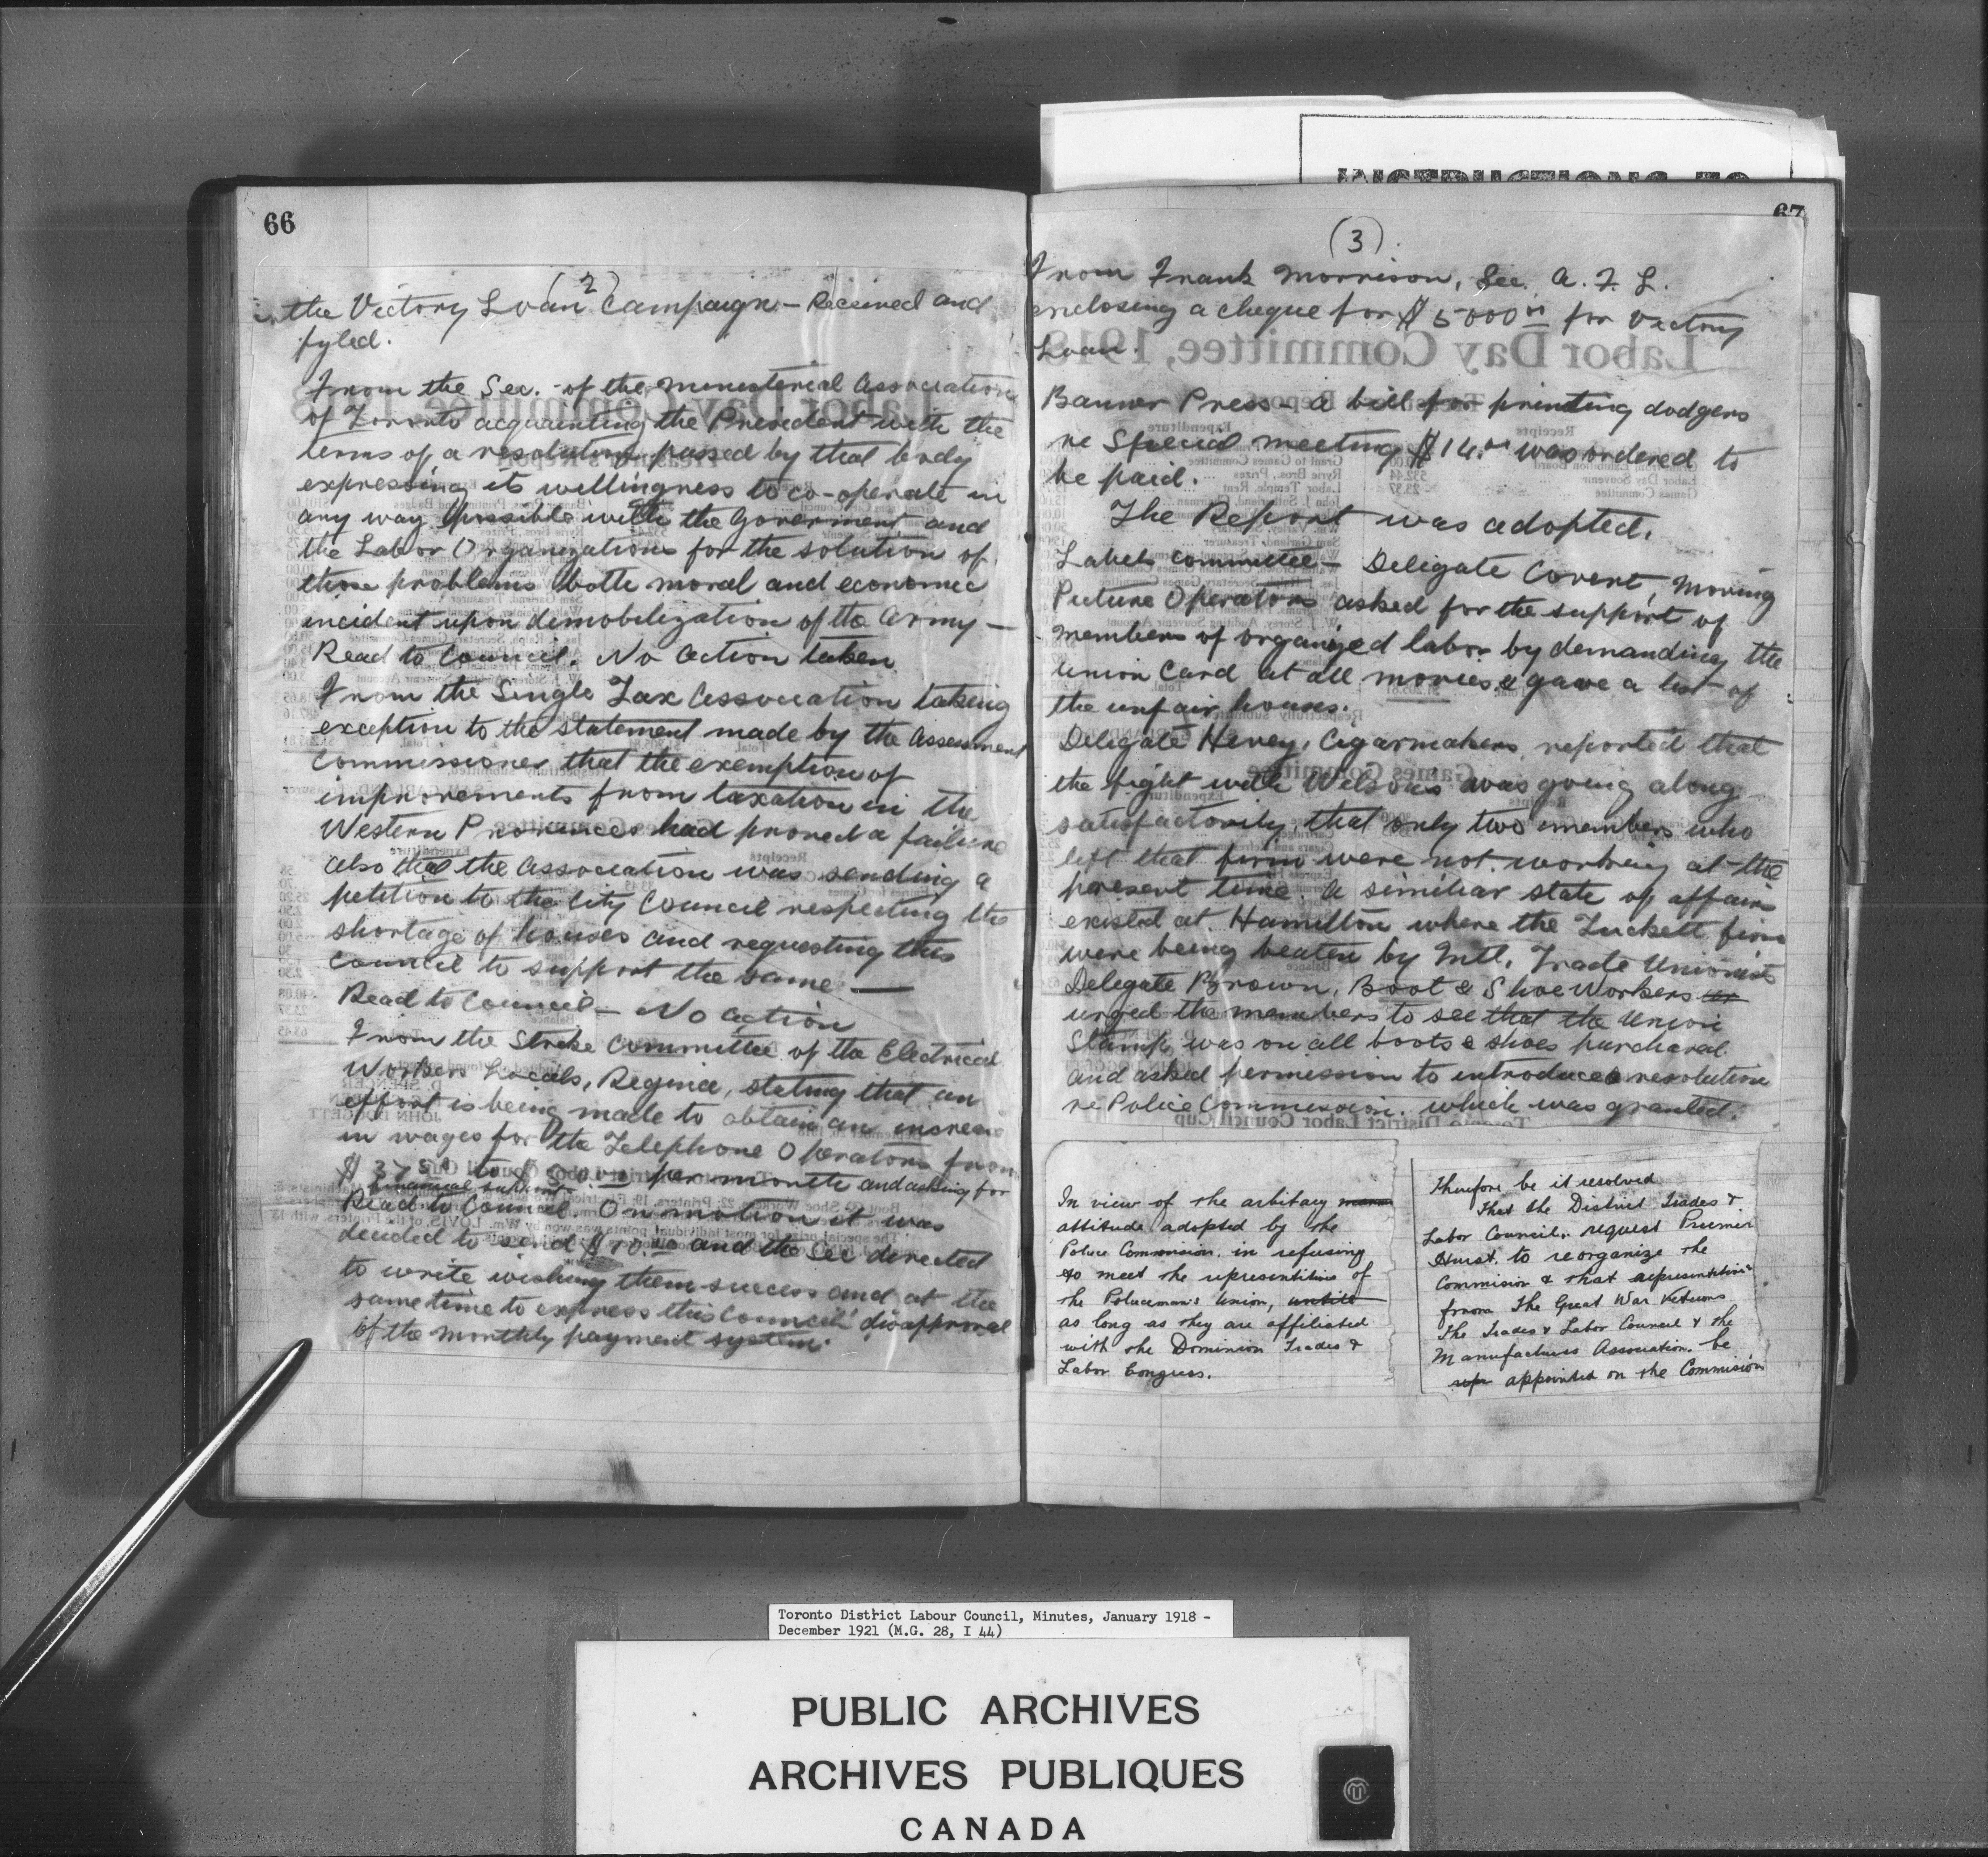 66
(2)
in the Victory Loan Campaign - Received and
fyled.
From the Sec. of the Ministerial Association
of Toronto acquainting the President with the
terms of a resolution passed by that body
expressing its willingness to co-operate in
any way possible with the Goverment and
the Labor Organizations for the solution of
those problems both moral and economic
incident upon demobilization of the Army -
Read to Council. No action taken
From the Single Tax Association taking
exception to the statement made by the Assessment
Commissioner that the exemption of
improvements from taxation in the
Western Provinces had proved a failure
also that the Association was sending a
petition to the City Council respecting the
shortage of houses and requesting this
Council to support the same -
Read to Council - No action
From the Strike Committee of the Electrical
Workers Locals, Regina, stating that an
effort is being made to obtain an increase
in wages for the Telephone Operators from
$ 37.50 to $50.00 per month and asking for
financial support.
Read to Council. On motion it was
decided to send $10.00 and the Sec directed
to write wishing them success and at the
same time to express this Council' disapproval
of the monthly payment system.
INSTRUCTIONS TO
67
(3)
From Frank Morrison, Sec. A. F. L.
enclosing a cheque for $ 5000.00 for Victory
Loan.
Banner Press - a bill for printing dodgers
re Special meeting $14.00 was ordered to
be paid.
The Report was adopted.
Labels committee - Delegate Covert, Moving
Picture Operators asked for the support of
members of organized labor by demanding the
Union Card at all movies & gave a list of
the unfair houses.
Delegate Hevey, Cigarmakers reported that
the fight with Wilsons was going along
satisfactorily, that only two members who
left that firm were not working at the
present time. A similiar state of affairs
existed at Hamilton where the Tuckett firm
were being beaten by Intl. Trade Unionists
Delegate Brown, Boot & Shoe Workers
urged the members to see that the Union
Stamp was on all boots & shoes purchased
and asked permission to introduce a resolution
re Police Commission. which was granted.
In view of the arbitary
attitude adopted by the
Police Commision. in refusing
to meet the representitives of
the Policeman's Union, untill
as long as they are affiliated
with the Dominion Trades &
Labor Congress.
Therefore be it resolved
That the District Trades &
Labor Council. request Premier
Hurst. to reorganize the
Commision & that representitives
from The Great War Veterans
The Trades & Labor Council & the
Manufactures Association. be
appointed on the Commision
Toronto District Labour Council, Minutes, January 1918 -
December 1921 (M.G. 28, I 44)
PUBLIC ARCHIVES
ARCHIVES PUBLIQUES
CANADA